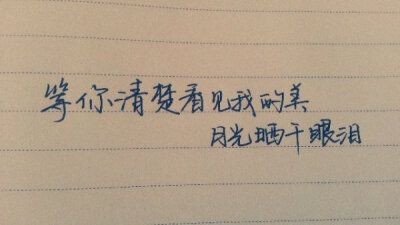 等你清楚看见我的美
月光晒干眼泪